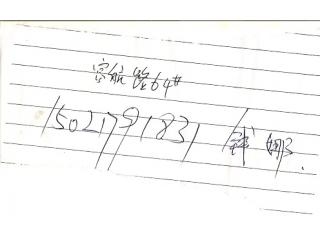 航路64#
15021791831 娜